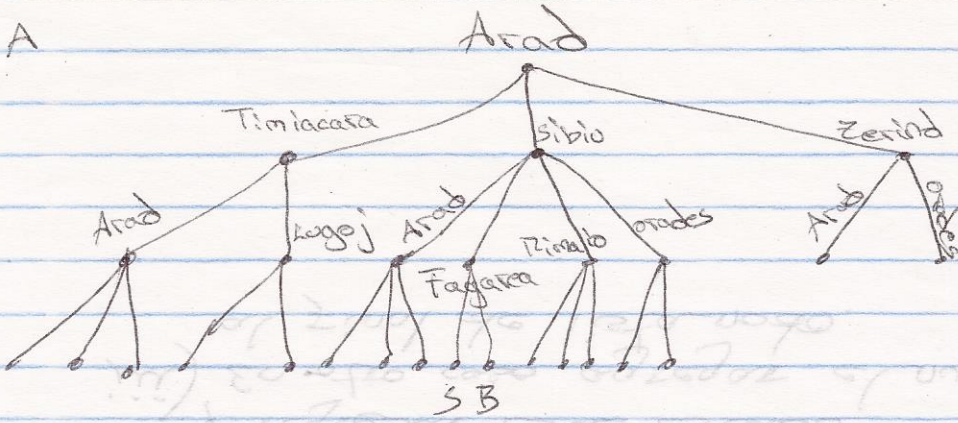 A
Arad
Timiacara
Sibiu
Zerind
Arad
Lugoj
Arad
Fagarea
Rimaio
orades
Arad
S B